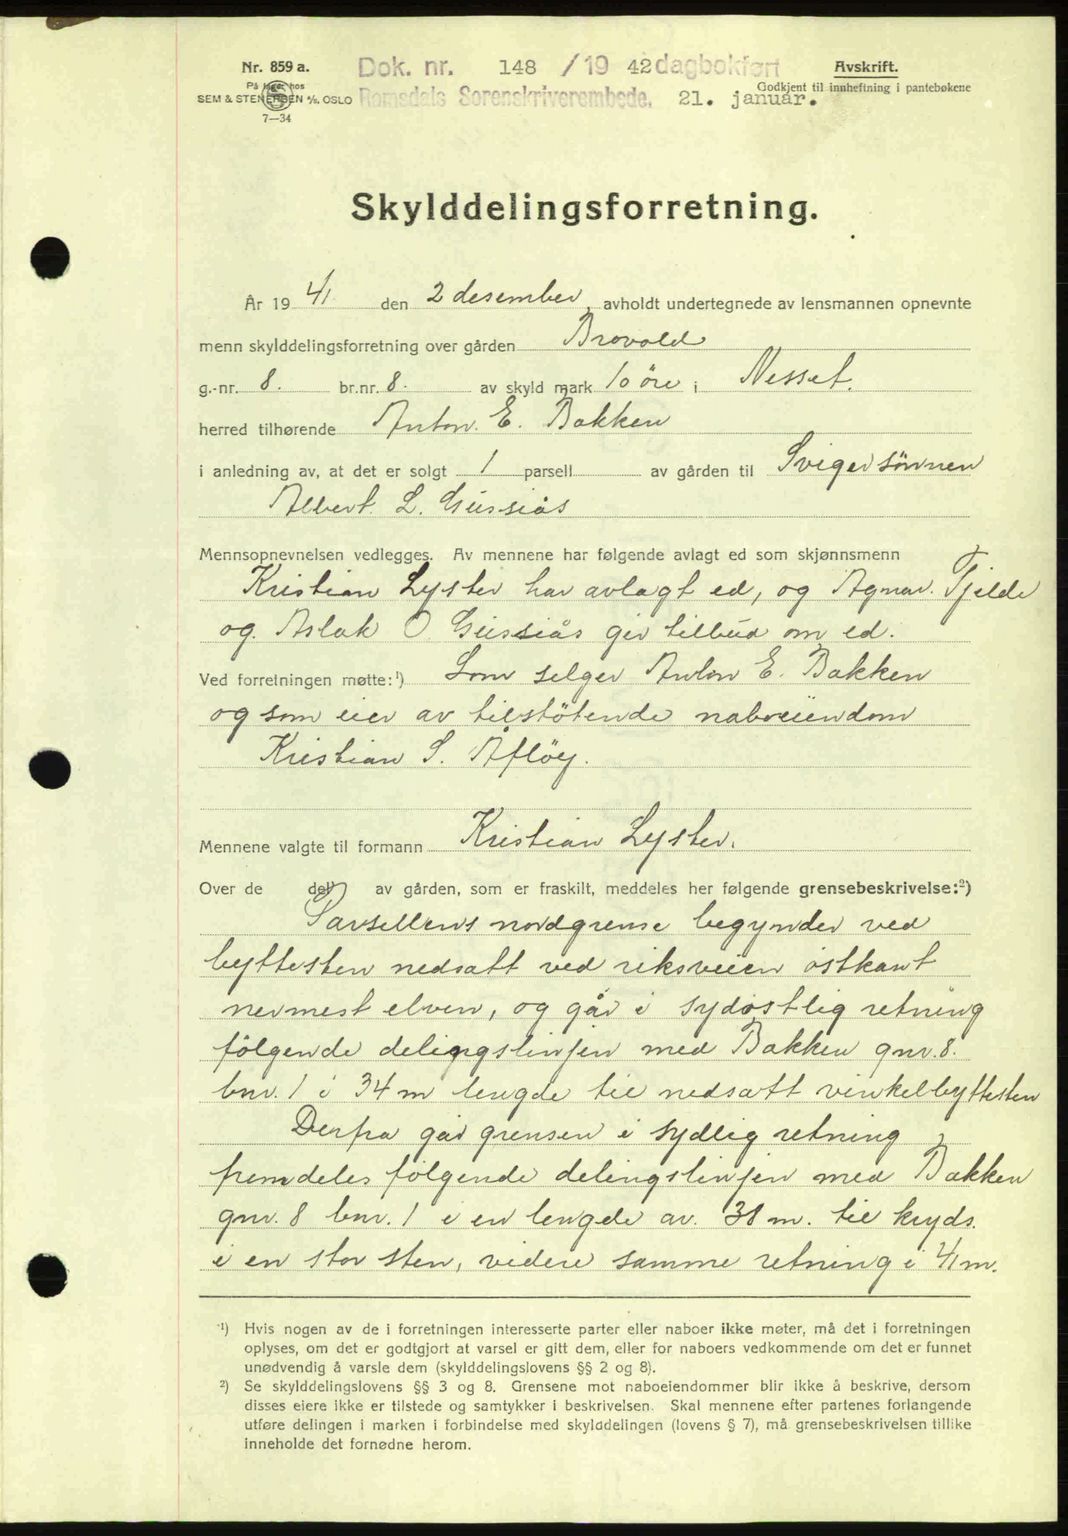 Nr. 859 a.
På lager hos
SEM & STENERSEN A/S, OSLO
7—34
Dok. nr. 148 / 19 42 dagbokført
Romsdals Sorenskriverembede. 21. januar.
Avskrift.
Godkjent til innheftning i pantebøkene
Skylddelingsforretning.
År 19 41 den 2 desember avholdt undertegnede av lensmannen opnevnte
menn skylddelingsforretning over gården Brovold
g.-nr. 8. br.nr. 8. av skyld mark 10 öre i Nesset.
herred tilhørende Anton. E. Bakken
i anledning av, at det er solgt 1 parsell av gården til Svigersönnen
Albert. L. Gussiås
Mennsopnevnelsen vedlegges. Av mennene har følgende avlagt ed som skjønnsmenn
Kristian Lyster har avlagt ed, og Agnar. Tjelde
og. Aslak O Gussiås gir tilbud om ed.
Ved forretningen møtte:¹) Som selger Anton E. Bakken
og som eier av tilstötende naboeiendom
Kristian S. Åfløy.
Mennene valgte til formann Kristian Lyster.
Over de del av gården, som er fraskilt, meddeles her følgende grensebeskrivelse:²)
Parsellens nordgrense begynder ved
byttesten nedsatt ved riksveien östkant
nermest elven, og går i sydøstlig retning
fölgende delingslinjen med Bakken gnr. 8.
bnr. 1 i 34 m lengde til nedsatt vinkelbyttesten
Derfra går grensen i sydlig retning
fremdeles følgende delingslinjen med Bakken
gnr. 8 bnr. 1 i en lengde av. 38 m. til kryds.
i en stor sten, videre samme retning i 41 m.
¹) Hvis nogen av de i forretningen interesserte parter eller naboer ikke møter, må det i forretningen
oplyses, om det er godtgjort at varsel er gitt dem, eller for naboers vedkommende om det er funnet
unødvendig å varsle dem (skylddelingslovens §§ 2 og 8).
²) Se skylddelingslovens §§ 3 og 8. Grensene mot naboeiendommer blir ikke å beskrive, dersom
disses eiere ikke er tilstede og samtykker i beskrivelsen. Skal mennene efter partenes forlangende
utføre delingen i marken i forbindelse med skylddelingen (lovens § 7), må grensebeskrivelsen tillike
inneholde det fornødne herom.